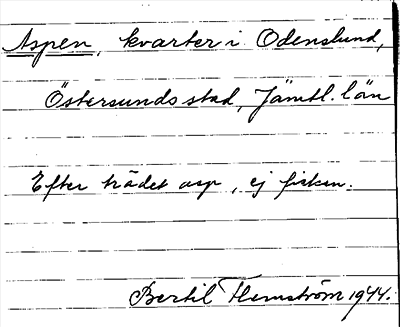 Aspen, kvarter i Odenslund,
Östersunds stad, Jämtl. län
Efter trädet asp, ej fisken.
Bertil Flemström 1944.